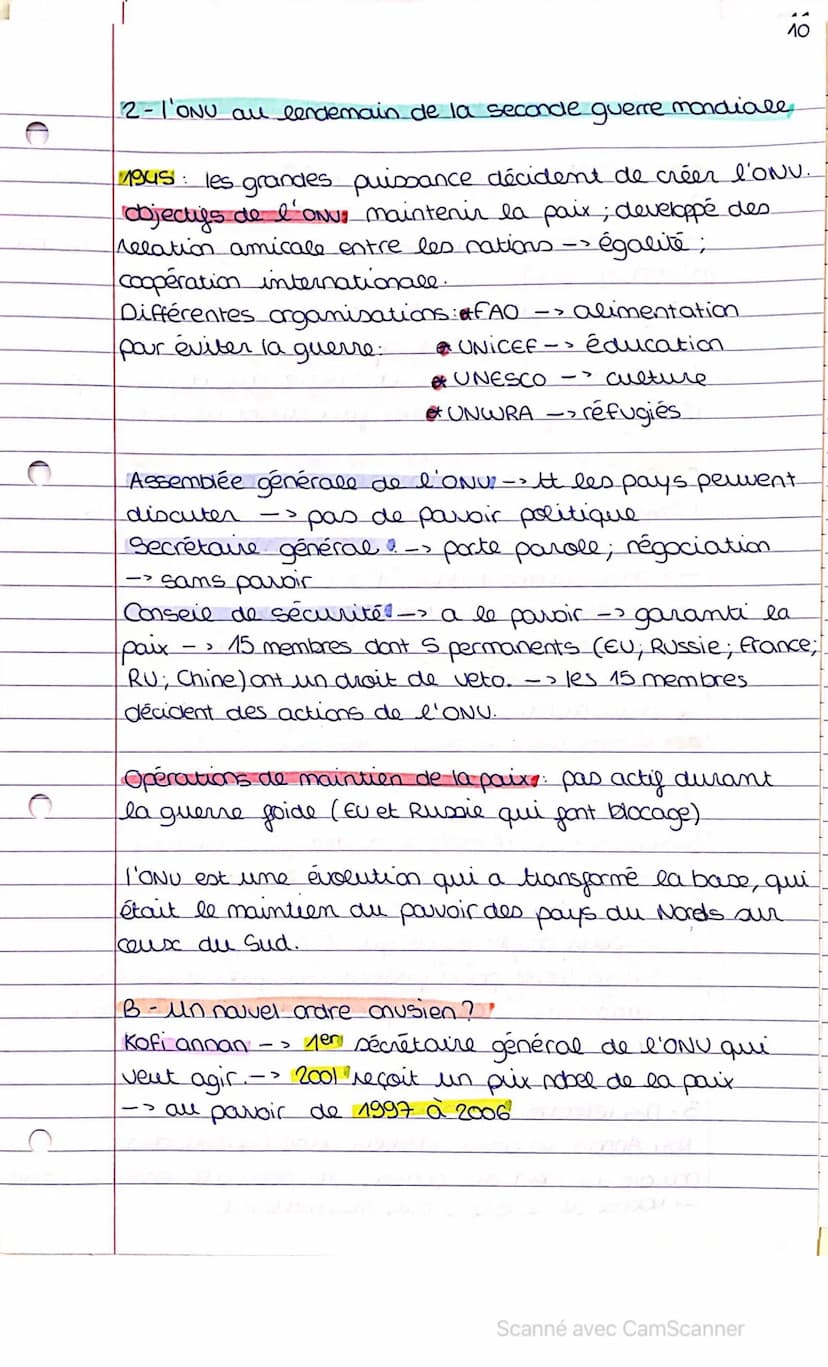 10
2-l'ONU au lendemain de la seconde guerre mondiale
1945 : les grandes puissance décident de créer l'ONU.
objectifs de l'ONU: maintenir la paix ; developpé des
relation amicale entre les nations -> égalité ;
coopération internationale.
Différentes organisations: FAO -> alimentation
pour éviter la guerre: UNICEF -> éducation
UNESCO -> culture
UNWRA -> réfugiés
Assemblée générale de l'ONU -> tt les pays peuvent
discuter -> pas de pouvoir politique
Secrétaire général : -> porte parole ; négociation
-> sans pouvoir
Conseil de sécurité: -> a le pouvoir -> garanti la
paix -> 15 membres dont 5 permanents (EU; Russie; France;
RU; Chine) ont un droit de veto. -> les 15 membres
décident des actions de l'ONU.
Opérations de maintien de la paix: pas actif durant
la guerre foide (EU et Russie qui font blocage)
l'ONU est une évolution qui a transformé la base, qui
était le maintien du pouvoir des pays du Nords sur
ceux du Sud.
B - Un nouvel ordre onusien ?
Kofi annan -> 1er sécrétaire général de l'ONU qui
veut agir. -> 2001 reçoit un prix nobel de la paix
-> au pouvoir de 1997 à 2006
Scanné avec CamScanner